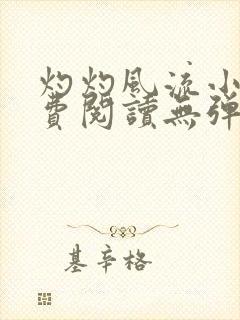 灼灼風流小
費閱讀無彈
基辛格